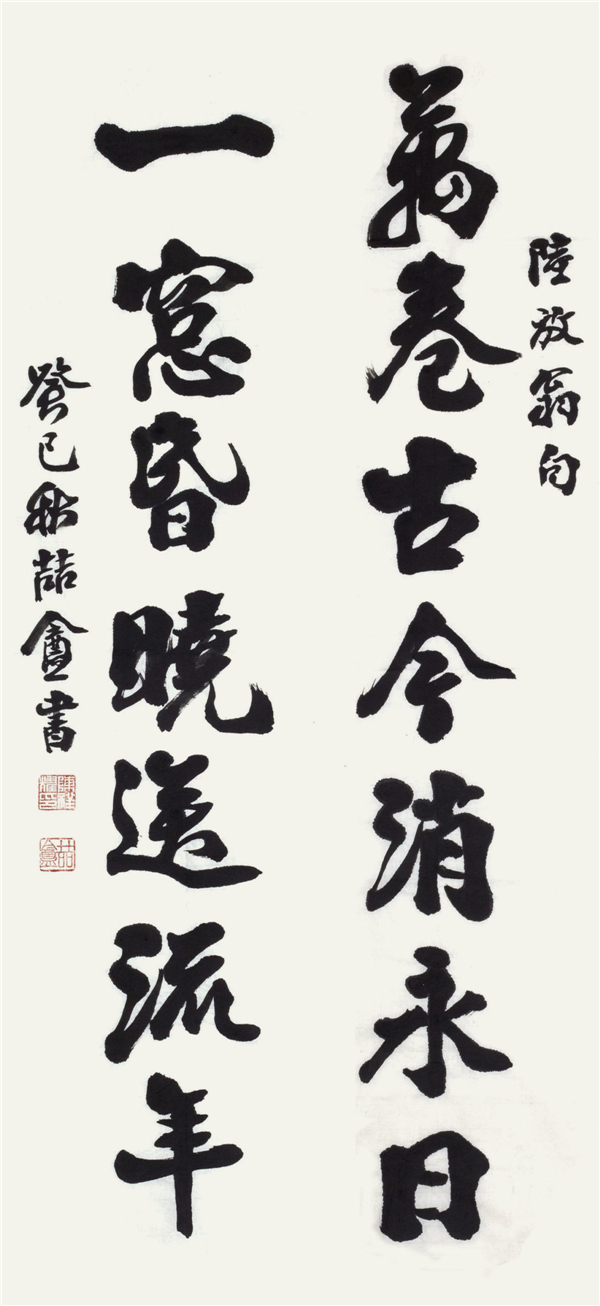 陸放翁句
萬卷古今消永日
一窓昏曉送流年
癸巳秋喆盦書
喆盦